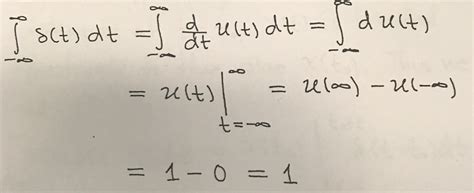 ∫_{-∞}^{∞} δ(t) dt = ∫_{-∞}^{∞} d/dt u(t) dt = ∫_{-∞}^{∞} d u(t)
= u(t) |_{t=-∞}^{∞} = u(∞) - u(-∞)
= 1 - 0 = 1